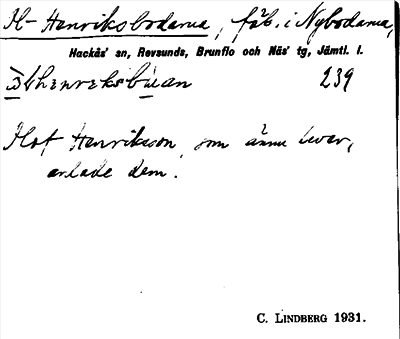 Il-Henriksbodarna, fäb. i Nybodarna,
Hackås' sn, Revsunds, Brunflo och Näs' tg, Jämtl. l.
239
Olof Henriksson, som ännu lever,
anlade dem.
C. LINDBERG 1931.